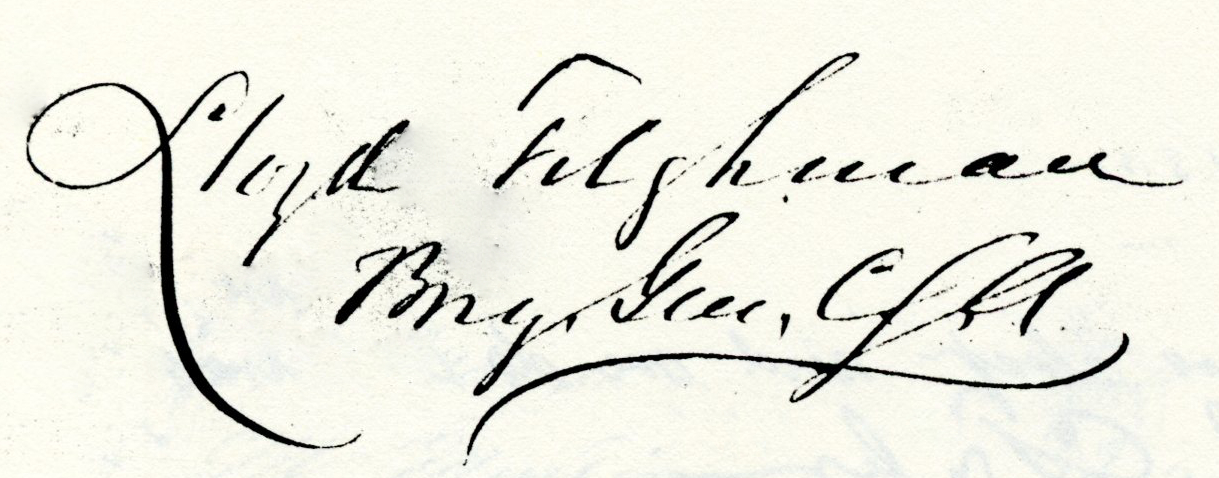 Lloyd Tilghman
Brig. Gen, C.S.A.